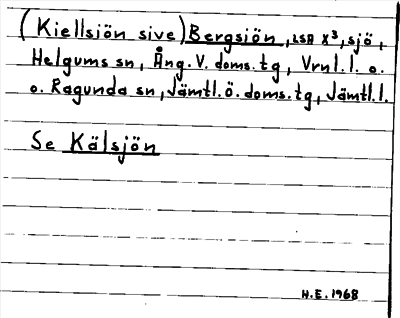 (Kiellsiön sive) Bergsiön, LSA X³, sjö,
Helgums sn, Ång. V. doms.tg, Vrnl.l. o.
o. Ragunda sn, Jämtl.ö. doms.tg, Jämtl.l.
Se Kälsjön
H.E. 1968